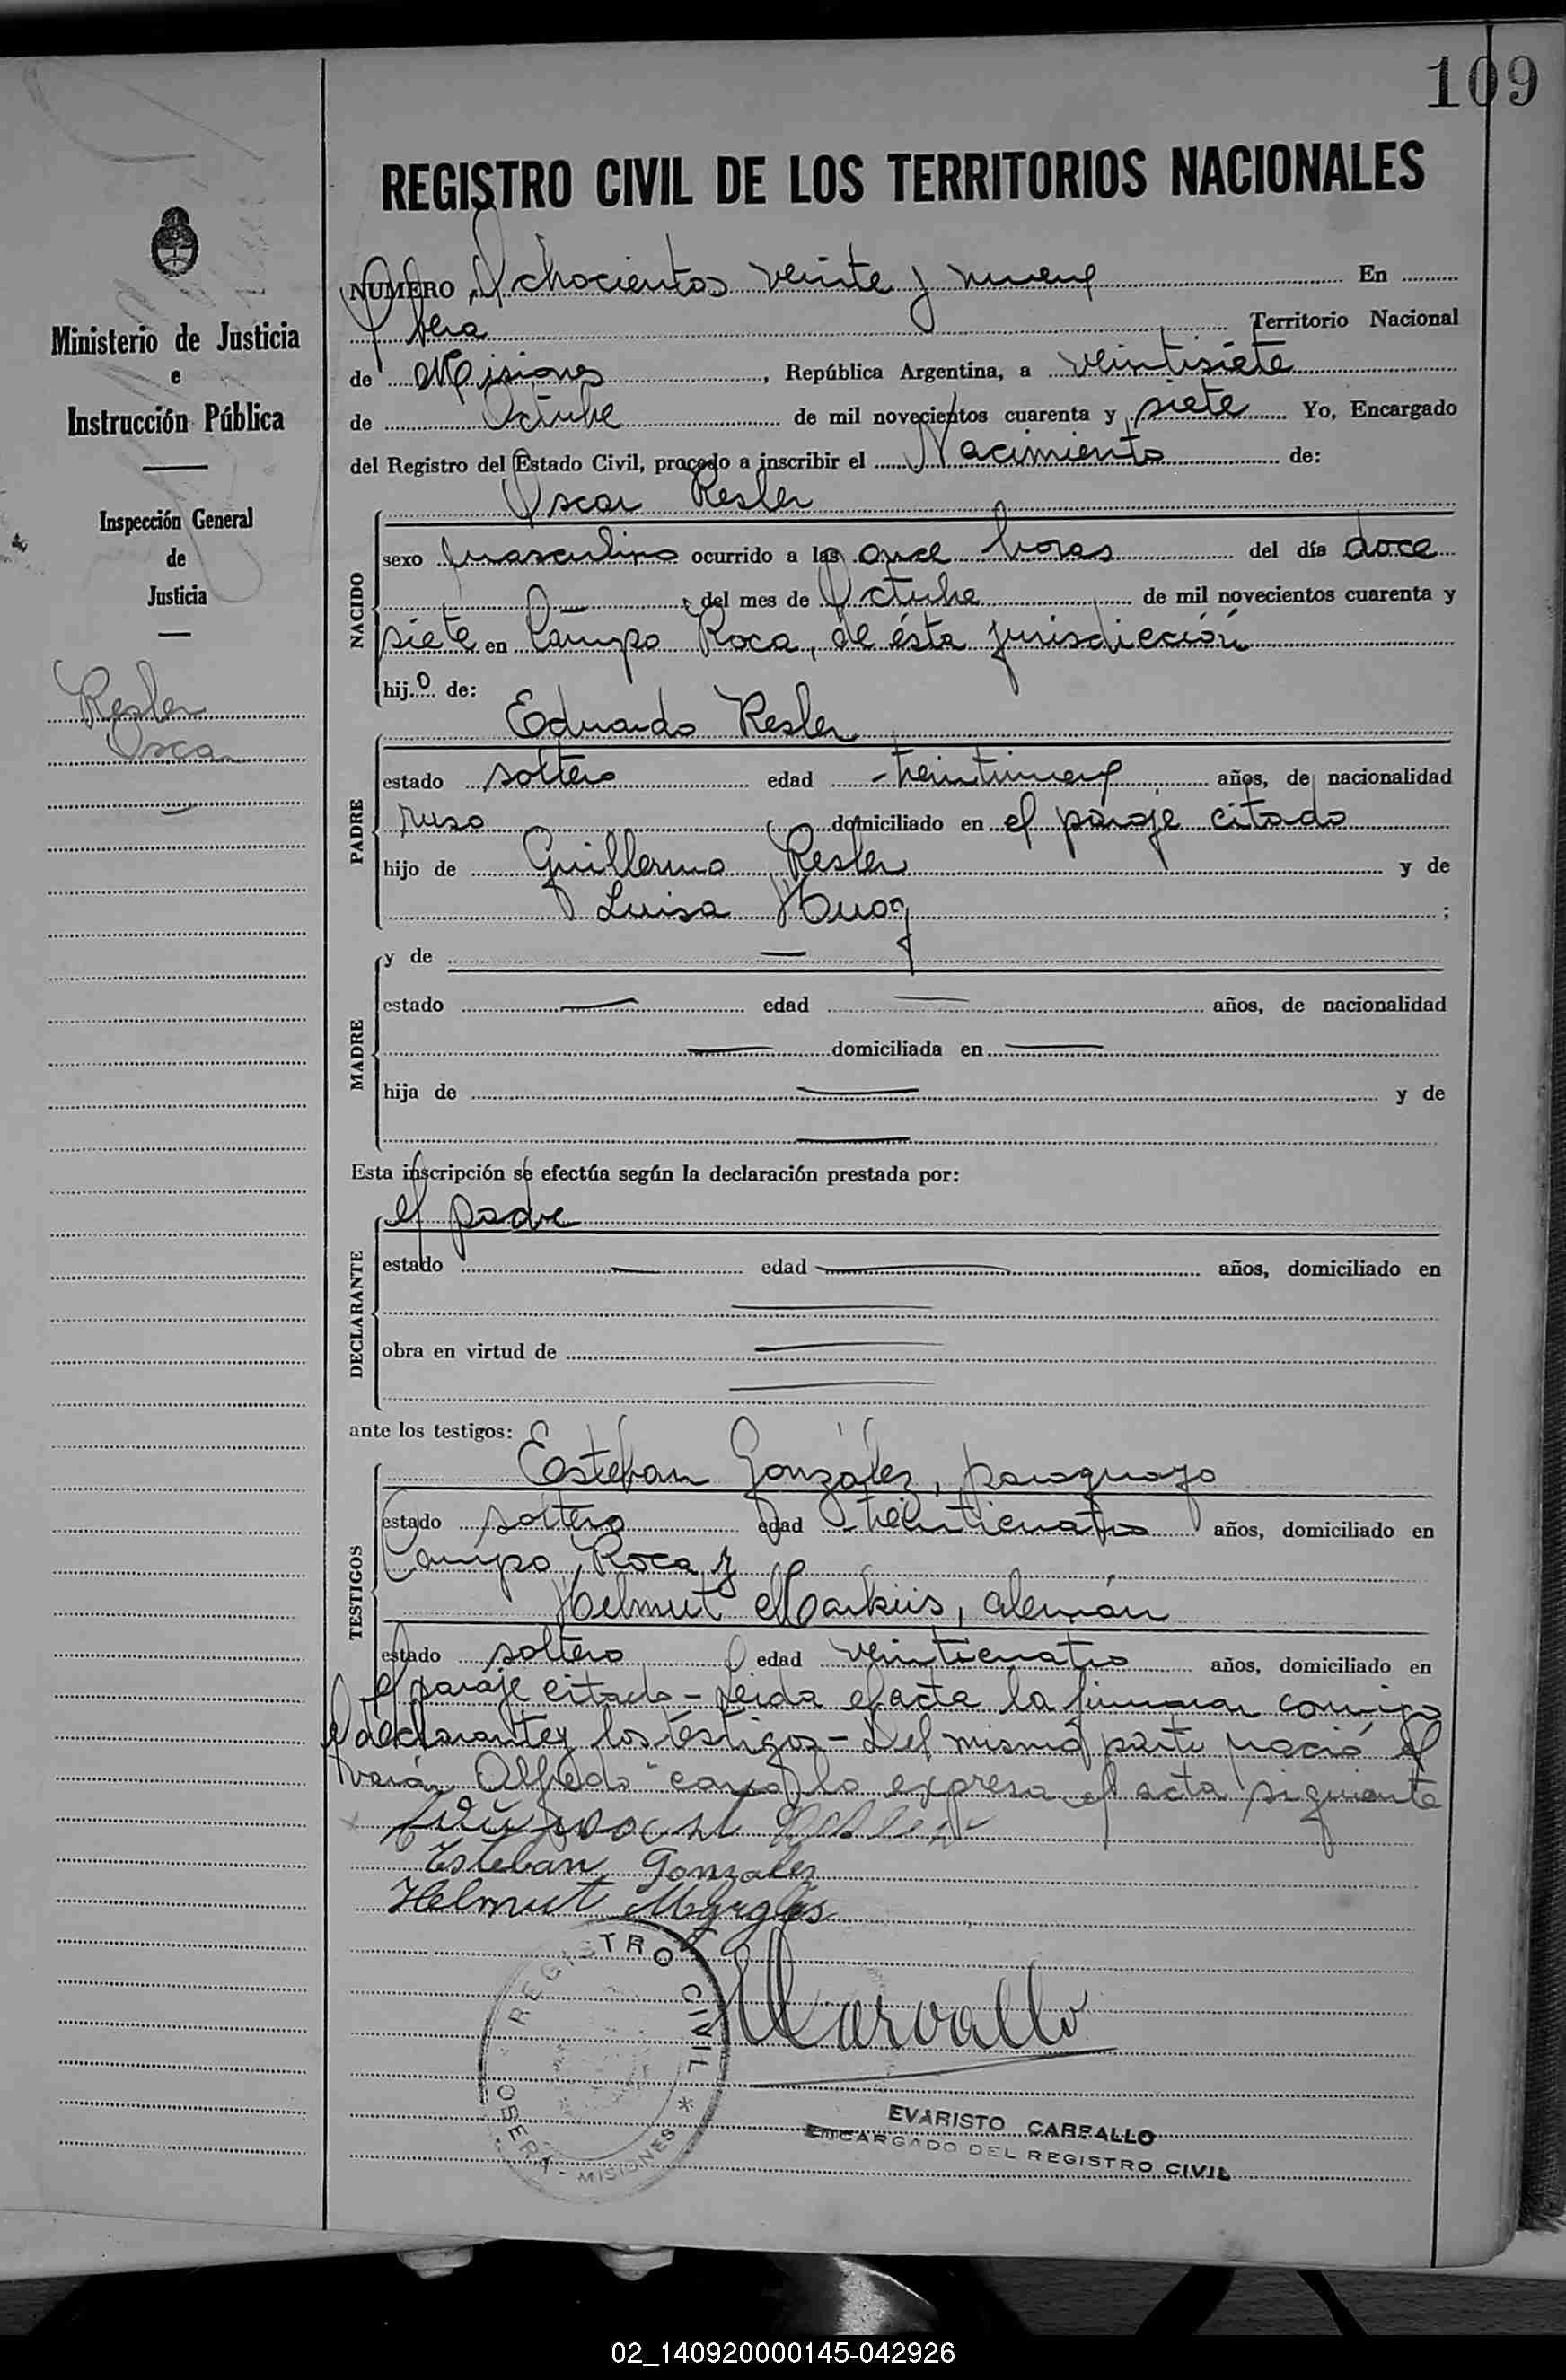 109
REGISTRO CIVIL DE LOS TERRITORIOS NACIONALES
Ministerio de Justicia
e
Instrucción Pública
Inspección General
de
Justicia
Resler
Oscar
NUMERO Ochocientos veinte y nueve En
Obera Territorio Nacional
de Misiones, República Argentina, a veintisiete
de Octubre de mil novecientos cuarenta y siete Yo, Encargado
del Registro del Estado Civil, procedo a inscribir el Nacimiento de:
Oscar Resler
NACIDO
sexo masculino ocurrido a las once horas del día doce
del mes de Octubre de mil novecientos cuarenta y
siete en Campo Roca, de ésta jurisdicción
hijo de:
Eduardo Resler
PADRE
estado soltero edad treintinueve años, de nacionalidad
ruso domiciliado en el paraje citado
hijo de Guillermo Resler y de
Luisa ;
MADRE
y de
estado edad años, de nacionalidad
domiciliada en
hija de y de
Esta inscripción se efectúa según la declaración prestada por:
el padre
DECLARANTE
estado edad años, domiciliado en
obra en virtud de
ante los testigos:
Esteban González, paraguayo
TESTIGOS
estado soltero edad treinticuatro años, domiciliado en
Campo Roca y
Helmut Marküs, alemán
estado soltero edad veinticuatro años, domiciliado en
el paraje citado - Leida el acta la firmaron conmigo
el declarante y los testigos - Del mismo parto nació el
varón "Alfredo" como lo expresa el acta siguiente
Esteban Gonzalez
Helmut
Carvallo
REGISTRO CIVIL
* OBERA - MISIONES *
EVARISTO CARBALLO
ENCARGADO DEL REGISTRO CIVIL
02_140920000145-042926